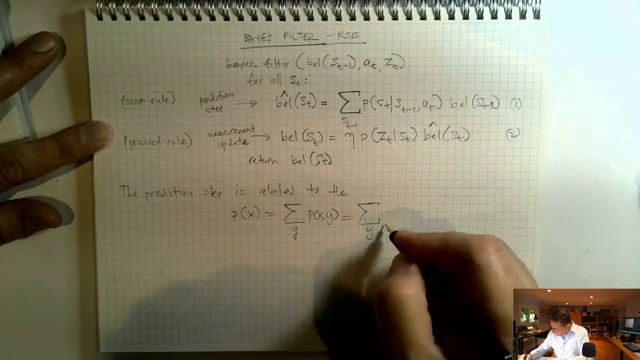 BAYES FILTER - RSE
bayes-filter (bel(S_{t-1}), a_t, Z_t)
for all S_t:
(sum rule) prediction step → \hat{bel}(S_t) = ∑_{S_{t-1}} p(S_t|S_{t-1}, a_t) bel(S_{t-1}) (1)
(product rule) measurement update → bel(S_t) = η p(Z_t|S_t) \hat{bel}(S_t) (2)
return bel(S_t)
The prediction step is related to the
p(x) = ∑_y p(x,y) = ∑_y